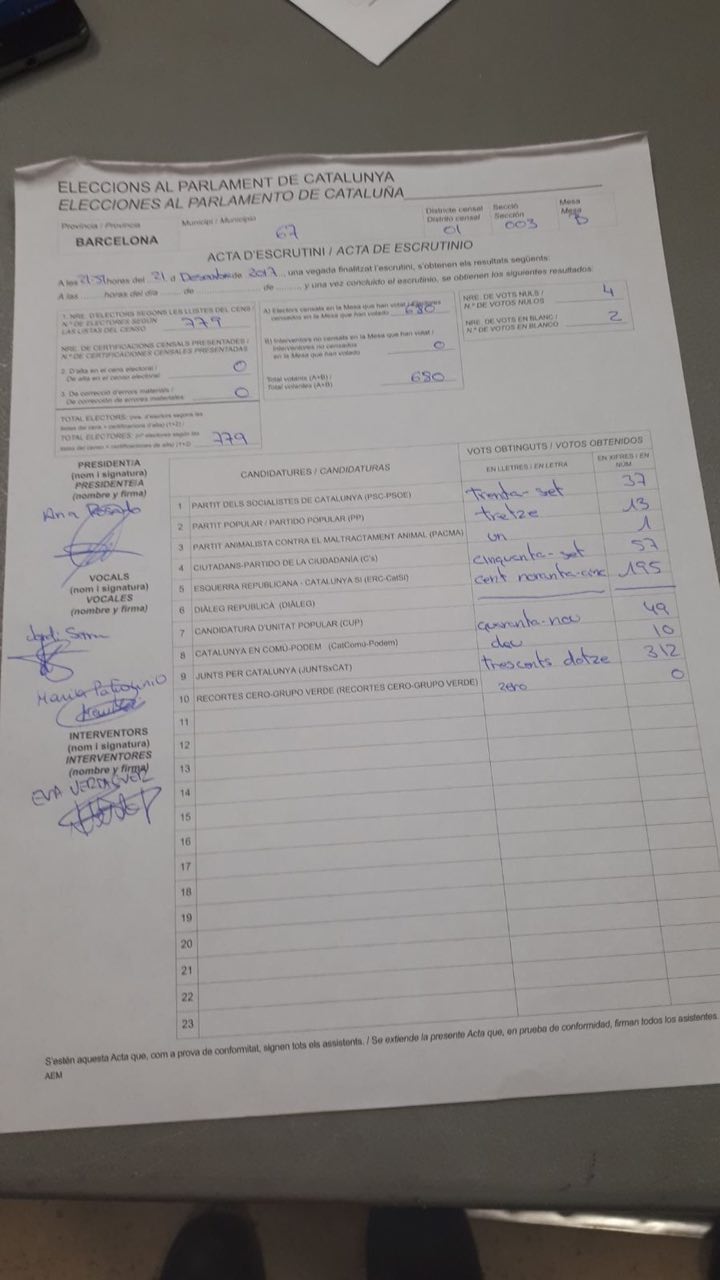 ELECCIONS AL PARLAMENT DE CATALUNYA
ELECCIONES AL PARLAMENTO DE CATALUÑA
Província / Provincia
BARCELONA
Municipi / Municipio
67
Districte censal
Distrito censal
01
Secció
Sección
003
Mesa
Mesa
B
ACTA D'ESCRUTINI / ACTA DE ESCRUTINIO
A les 21:51 hores del 21 d Desembre de 2017, una vegada finalitzat l'escrutini, s'obtenen els resultats següents:
A las ........ horas del día ........ de ........ de ........ y una vez concluido el escrutinio, se obtienen los siguientes resultados:
1. NRE. D'ELECTORS SEGONS LES LLISTES DEL CENS /
N.º DE ELECTORES SEGÚN
LAS LISTAS DEL CENSO
779
NRE. DE CERTIFICACIONS CENSALS PRESENTADES /
N.º DE CERTIFICACIONES CENSALES PRESENTADAS
2. D'alta en el cens electoral /
De alta en el censo electoral
0
3. De correcció d'errors materials /
De corrección de errores materiales
0
TOTAL ELECTORS:
TOTAL ELECTORES:
779
A) Electors censats en la Mesa que han votat /
censados en la Mesa que han votado
680
B) Interventors no censats en la Mesa que han votat /
Interventores no censados
en la Mesa que han votado
0
Total votants (A+B) /
Total votantes (A+B)
680
NRE. DE VOTS NULS /
N.º DE VOTOS NULOS
4
NRE. DE VOTS EN BLANC /
N.º DE VOTOS EN BLANCO
2
PRESIDENT/A
(nom i signatura)
PRESIDENTE/A
(nombre y firma)
Ana Rosado
VOCALS
(nom i signatura)
VOCALES
(nombre y firma)
Jordi
Maria Patrocinio
INTERVENTORS
(nom i signatura)
INTERVENTORES
(nombre y firma)
EVA
CANDIDATURES / CANDIDATURAS
VOTS OBTINGUTS / VOTOS OBTENIDOS
EN LLETRES / EN LETRA
EN XIFRES / EN NÚM.
1 PARTIT DELS SOCIALISTES DE CATALUNYA (PSC-PSOE) trenta-set 37
2 PARTIT POPULAR / PARTIDO POPULAR (PP) tretze 13
3 PARTIT ANIMALISTA CONTRA EL MALTRACTAMENT ANIMAL (PACMA) un 1
4 CIUTADANS-PARTIDO DE LA CIUDADANÍA (C's) cinquanta-set 57
5 ESQUERRA REPUBLICANA - CATALUNYA SÍ (ERC-CatSí) cent noranta-cinc 195
6 DIÀLEG REPUBLICÀ (DIÀLEG)
7 CANDIDATURA D'UNITAT POPULAR (CUP) quaranta-nou 49
8 CATALUNYA EN COMÚ-PODEM (CatComú-Podem) deu 10
9 JUNTS PER CATALUNYA (JUNTSxCAT) trescents dotze 312
10 RECORTES CERO-GRUPO VERDE (RECORTES CERO-GRUPO VERDE) zero 0
11
12
13
14
15
16
17
18
19
20
21
22
23
S'estén aquesta Acta que, com a prova de conformitat, signen tots els assistents. / Se extiende la presente Acta que, en prueba de conformidad, firman todos los asistentes.
AEM